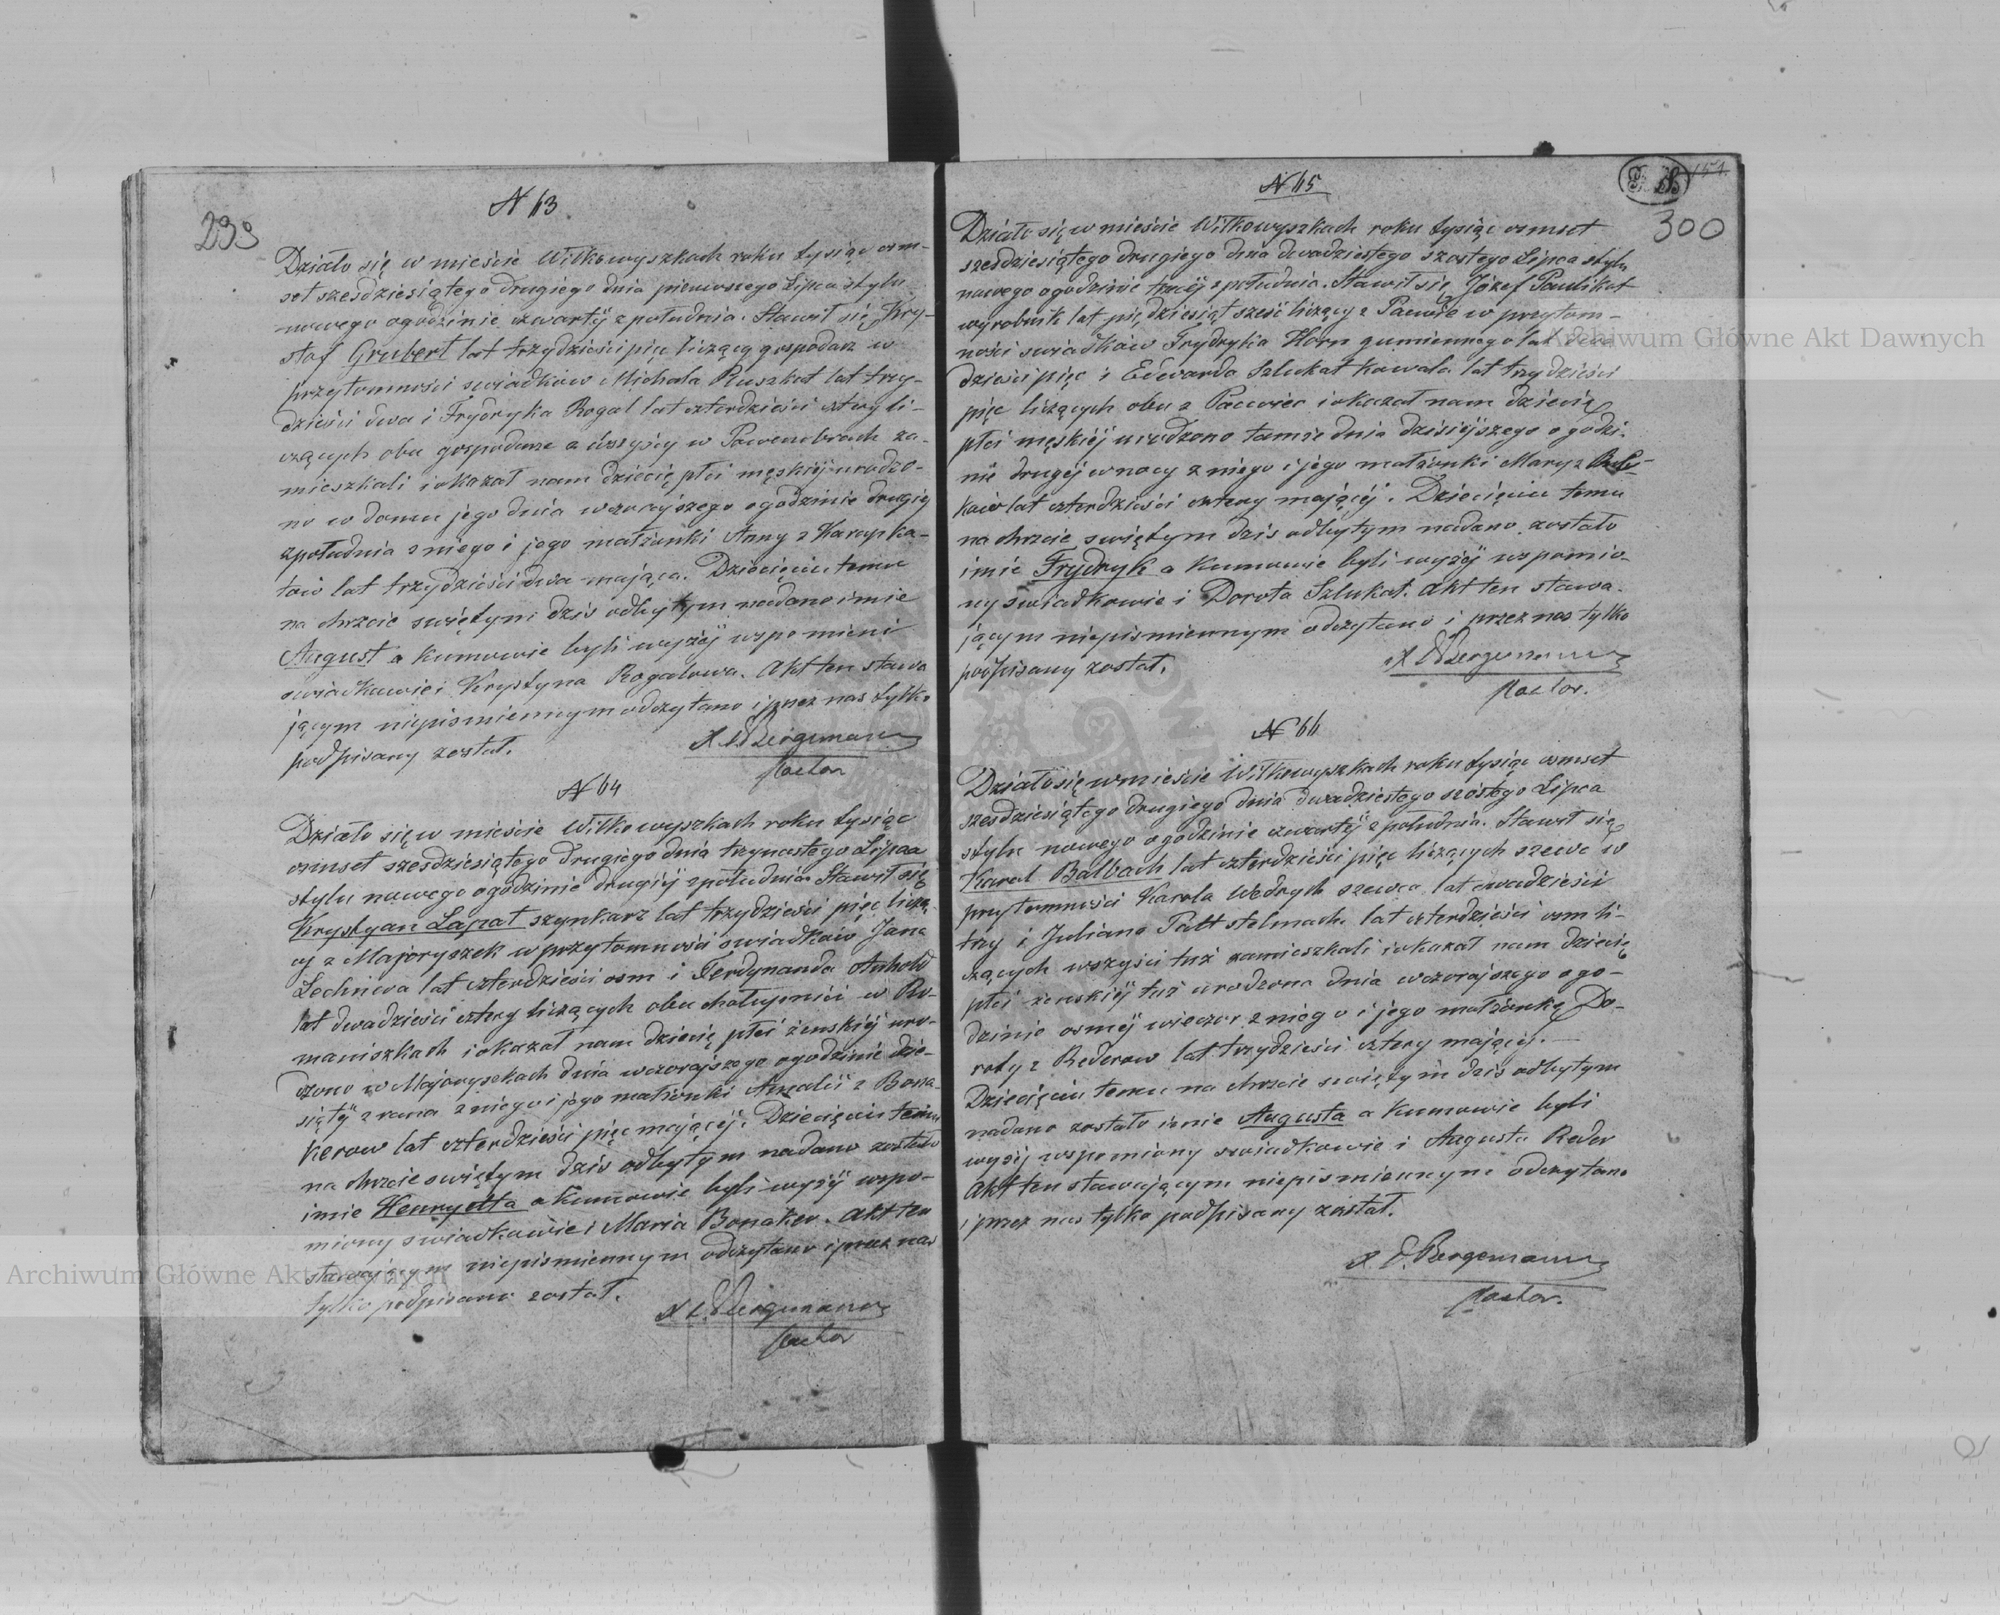 239
N 63
Działo się w mieście Wiłkowyszkach roku tysiąc osm-
set szesdziesiątego drugiego dnia pierwszego Lipca stylu
nowego ogodzinie czwartÿ z południa. Stawił się Kry-
stof Grubert lat trzydzieści pięc liczący gospodarz w
przytomności swiadków Michała Ruszkat lat trzy-
dzieści dwa i Frydryka Rogal lat czterdzieści cztery li-
czących obu gospodarze a wszyscy w Pawembrach za-
mieszkali i okazał nam dziecię płci męskiÿ urodzo-
no w domu jego dnia wczorajszego ogodzinie drugiÿ
zpołudnia z niego i jego małżonki Anny z Karapka-
tów lat trzydzieści dwa mająca. Dziecięciu temu
na chrzcie swiętym dzis odbytym nadano imie
August a kumowie byli wyżÿ wspomieni
swiadkowie i Krystyna Rogalowa. Akt ten stawa
jącym niepismiennym odczytano i przez nas tylko
podpisany został.
X E Bergemann
Pastor
N 64
Działo się w mieście Wiłkowyszkach roku tysiąc
osmset szesdziesiątego drugiego dnia trzynastego Lipca
stylu nowego ogodzinie drugiÿ zpołudnia Stawił się
Krystyan Lapat szynkarz lat trzydzieści pięc liczą
cy z Majoryszek w przytomności swiadków Jana
Lechniva lat czterdzieści osm i Ferdynanda Anhold
lat dwadzieści cztery liczących obu chałupnici w Ro-
maniszkach i okazał nam dziecię płci żenskiÿ uro-
dzono w Majoryszkach dnia wczorajszego ogodzinie dzie-
siątÿ z rana z niego i jego małżonki Amalii z Bona-
kerow lat czterdzieści pięc mającÿ. Dziecięciu temu
na chrzcie swiętym dzis odbytym nadano zostało
imie Henryetta a kumowie byli wyżÿ wspo-
miony swiadkowie i Maria Bonaker. Akt ten
stawającym niepismiennym odczytano i przez nas
tylko podpisano został.
X E. Bergemann
Pastor
300
N 65
Działo się w mieście Wiłkowyszkach roku tysiąc osmset
szesdziesiątego drugiego dnia dwadziestego szostego Lipca stylu
nowego ogodzinie trzciÿ z południa. Stawił się Józef Paulikat
wyrobnik lat pięcdziesiąt szesć liczący z Pacwie w przytom-
ności swiadków Frydryka Horn gumiennego lat dwa
dzieści pięc i Edwarda Szlukat kowala lat trzydzieści
pięc liczących obu z Pacwiec i okazał nam dziecię
płci męskiÿ urodzono tamże dnia dzisiejszego ogodzi-
nie drugÿ w nocy z niego i jego małżonki Mary z
ków lat czterdzieści cztery mającÿ. Dziecięciu temu
na chrzcie swiętym dzis odbytym nadano zostało
imie Frydryk a kumowie byli wyżÿ wspomio-
ny swiadkowie i Dorota Szlukat. Akt ten stawa-
jącym niepismiennym odczytano i przez nas tylko
podpisany został.
X E Bergemann
Pastor.
N 66
Działo się w mieście Wiłkowyszkach roku tysiąc osmset
szesdziesiątego drugiego dnia dwadziestego szóstego Lipca
stylu nowego ogodzinie czwartÿ z południa. Stawił się
Karol Balbach lat czterdzieści pięc liczących szewc w
przytomności Karola Wedrych szewca lat dwadzieści
trzy i Juliana Palt stelmach lat czterdzieści osm li-
czących wszyści tuż zamieszkali i okazał nam dziecię
płci żenskiÿ tuż urodzona dnia wczorajszego ogo-
dzinie osmÿ wieczor z niego i jego małżonkę Do-
roty z Rederow lat trzydzieści cztery mającÿ. —
Dziecięciu temu na chrzcie swiętym dzis odbytym
nadano zostało imie Augusta a kumowie byli
wyżÿ wspomiony swiadkowie i Augusta Reder
Akt ten stawającym niepismiennym odczytano
i przez nas tylko podpisany został.
X. E. Bergemann
Pastor.
Archiwum Główne Akt Dawnych
Archiwum Główne Akt Dawnych